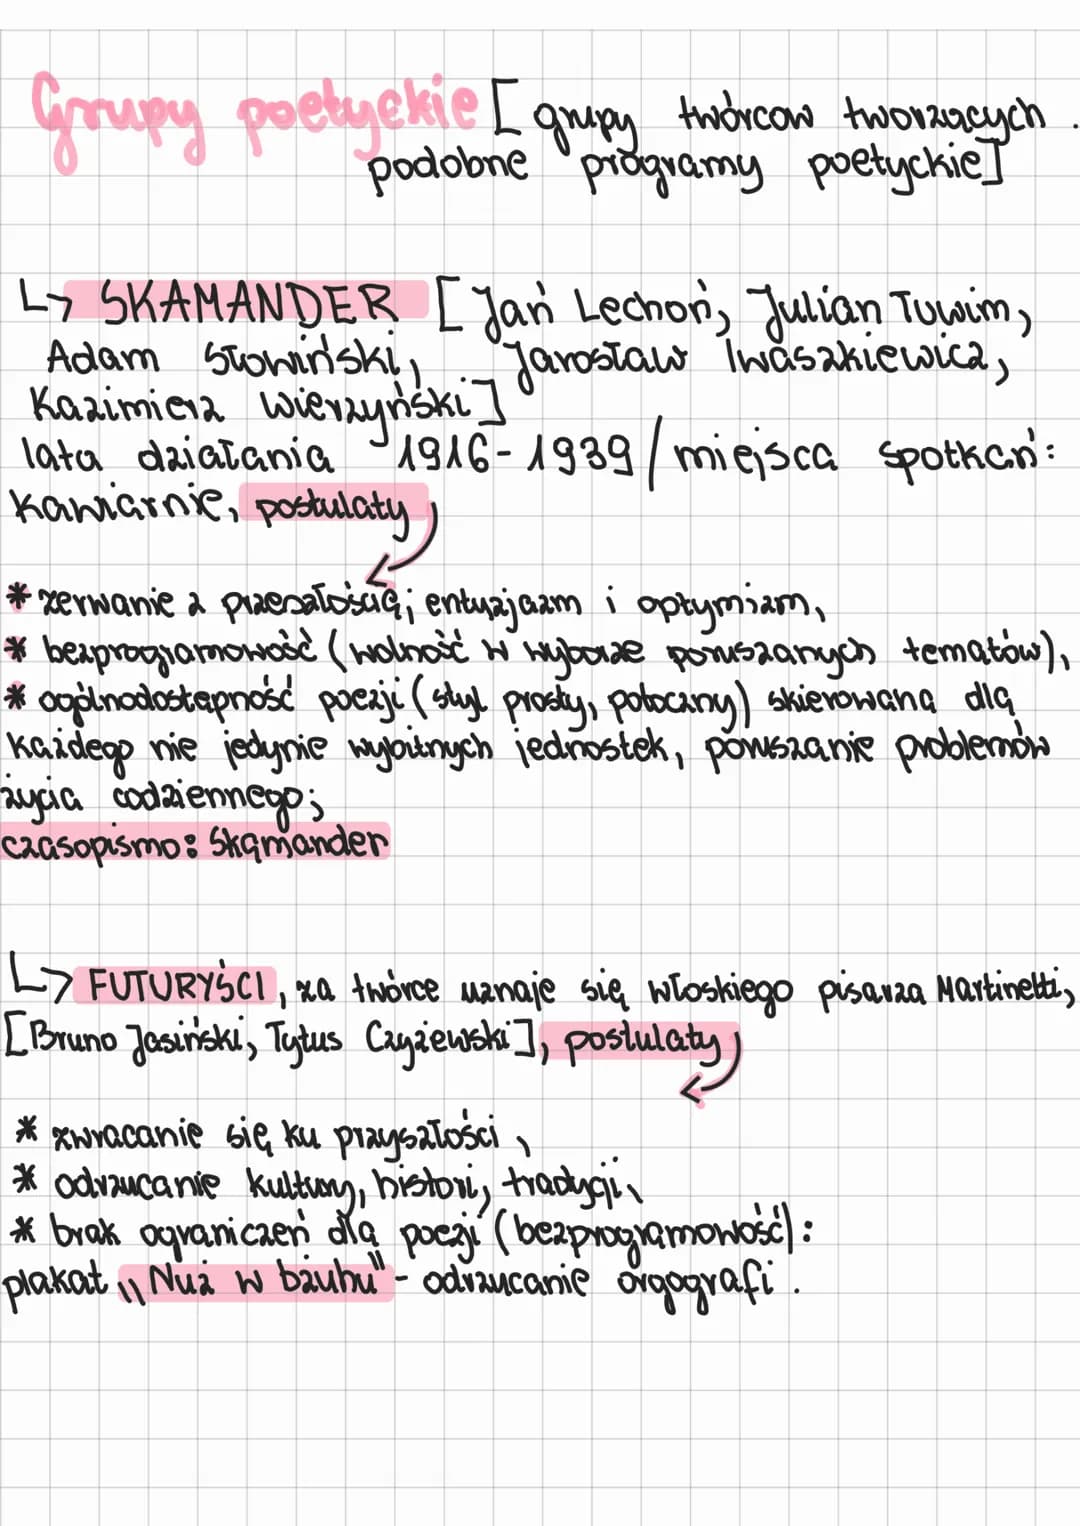 Grupy poetyckie [grupy twórcow tworzących
podobne programy poetyckie]
↳ SKAMANDER [Jan Lechoń, Julian Tuwim,
Adam Słowiński, Jarosław Iwaszkiewicz,
Kazimierz Wierzyński]
lata działania 1916-1939/miejsca spotkań:
kawiarnie, postulaty
* zerwanie z przeszłością; entuzjazm i optymizm,
* bezprogramowość (wolność w wyborze poruszanych tematów),
* ogólnodostępność poezji (styl prosty, potoczny) skierowana dla
każdego nie jedynie wybitnych jednostek, poruszanie problemów
życia codziennego;
czasopismo: Skamander
↳ FUTURYŚCI, za twórce uznaje się włoskiego pisarza Martinetti,
[Bruno Jasiński, Tytus Czyżewski], postulaty
* zwracanie się ku przyszłości,
* odrzucanie kultury, histori, tradycji,
* brak ograniczeń dla poezji (bezprogramowość):
plakat „Nuż w bżuhu" - odrzucanie orgografi.